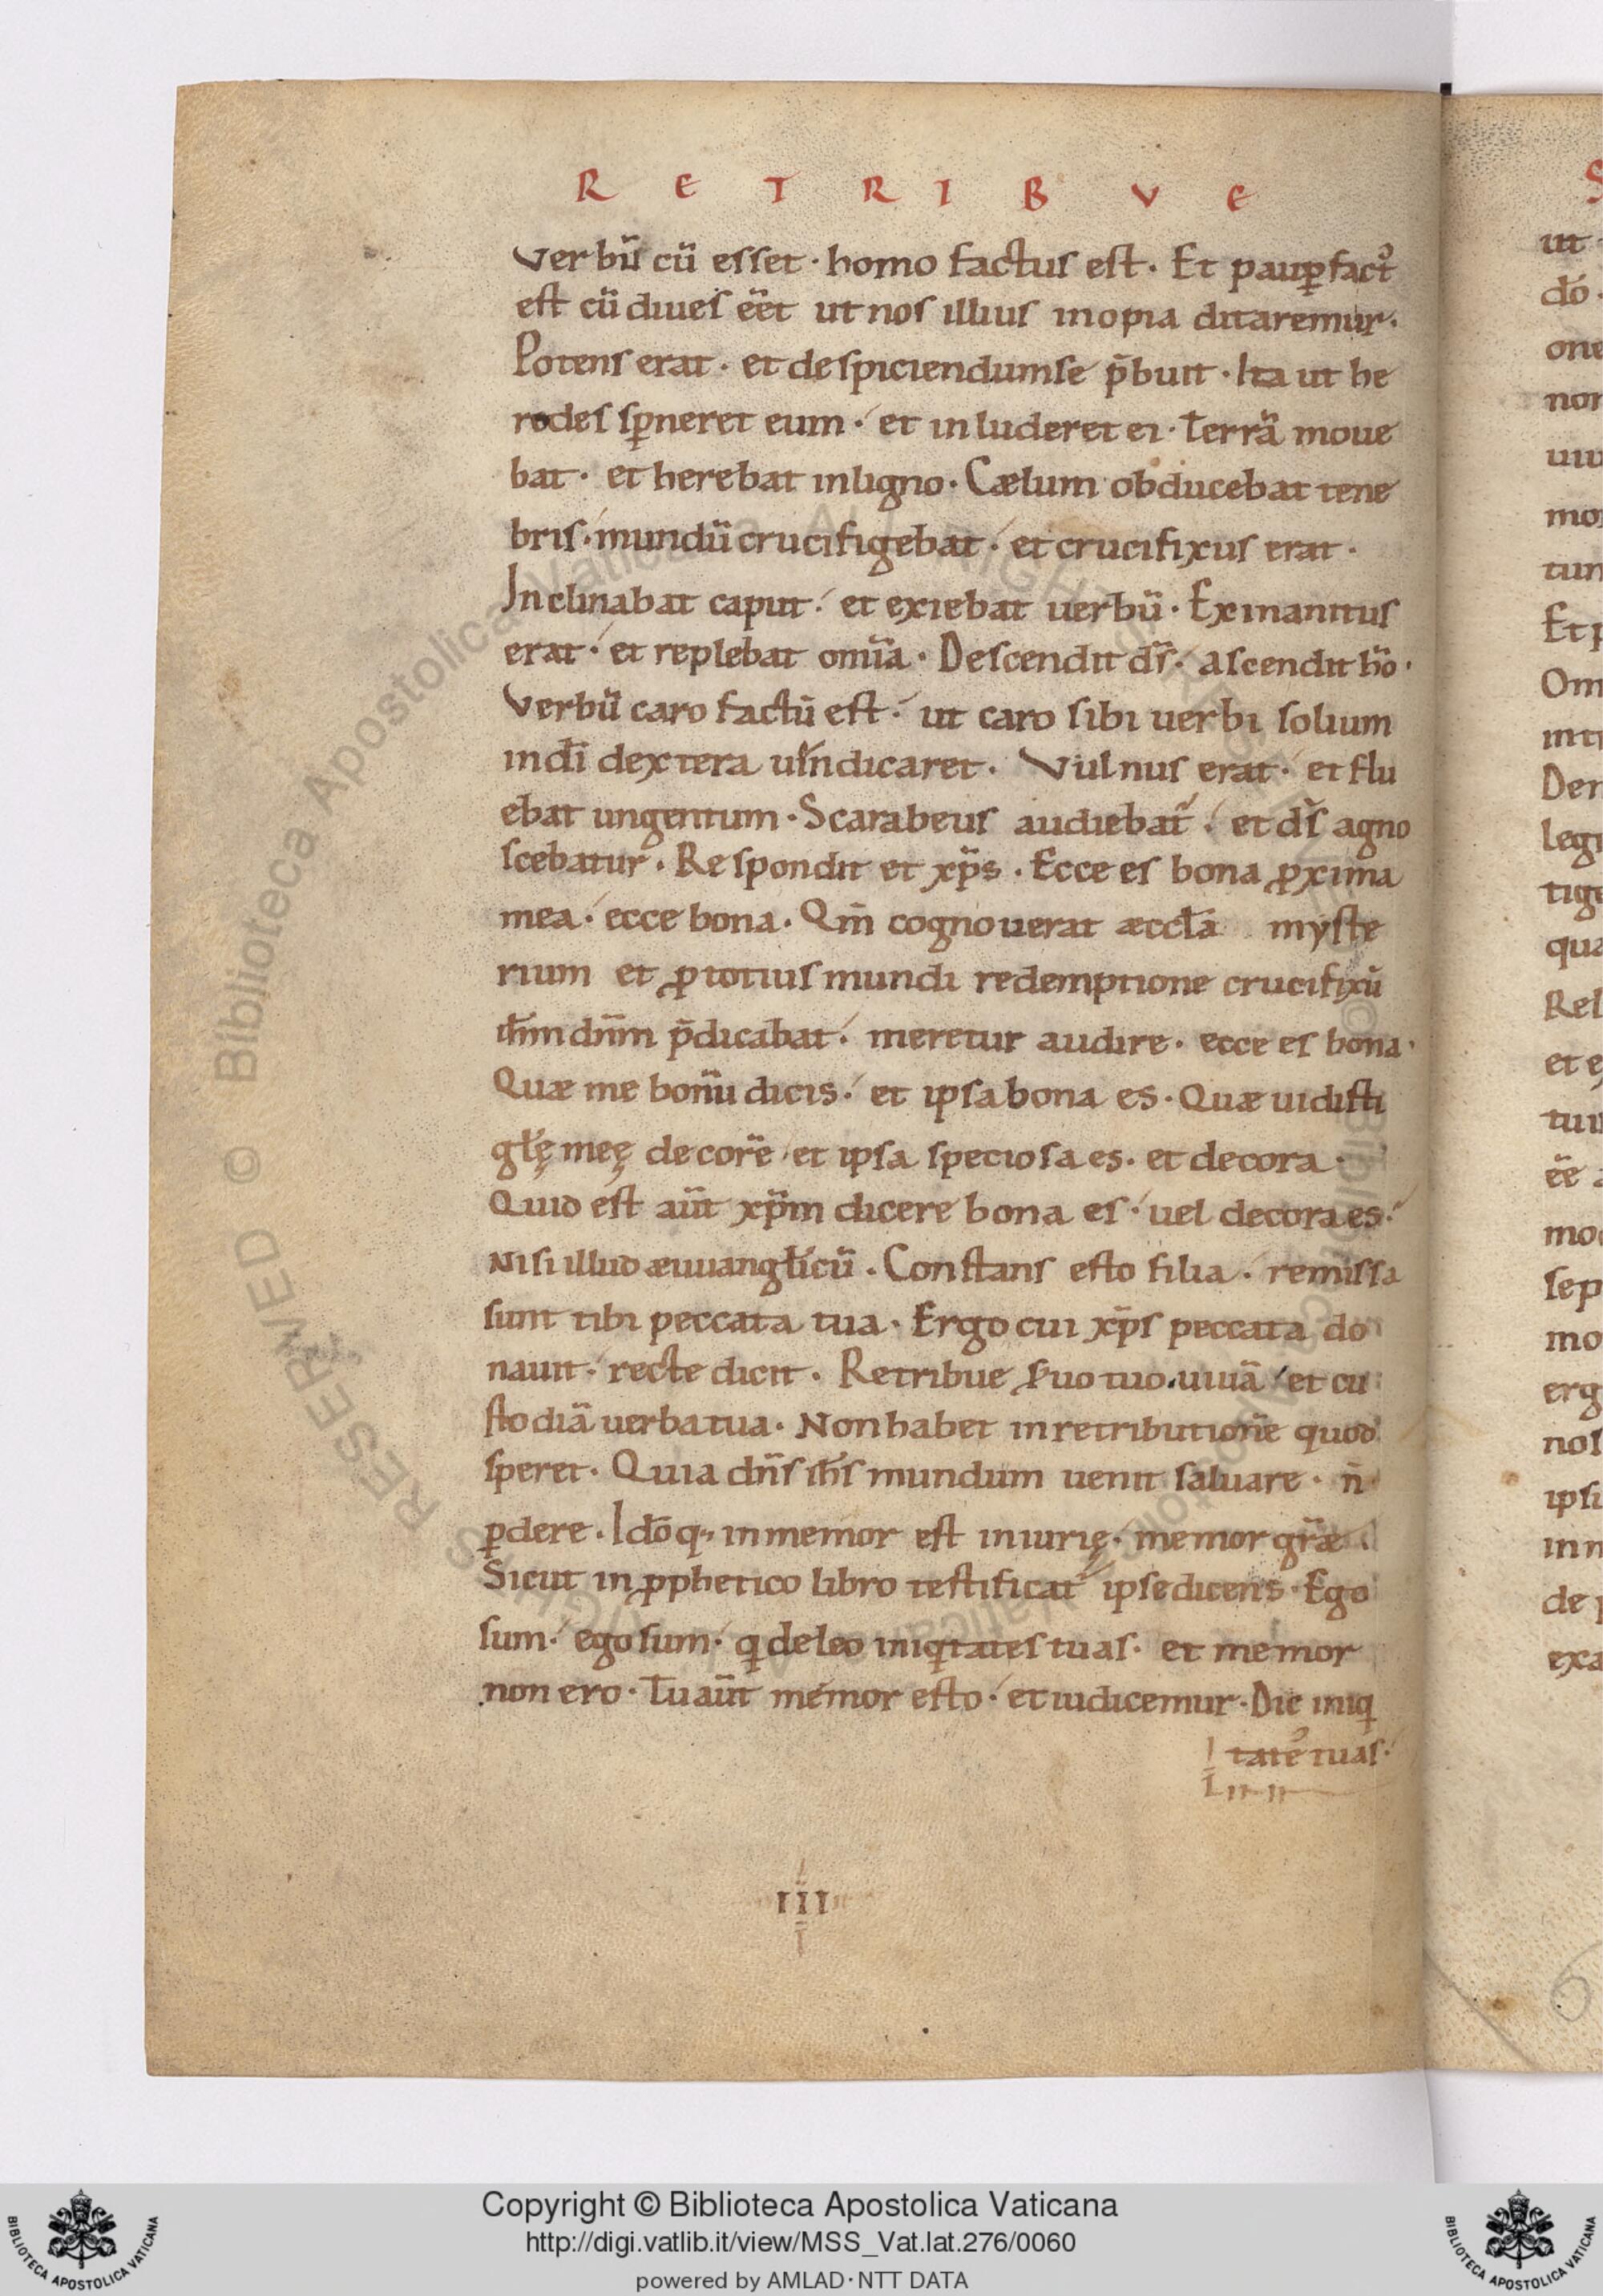 R E T R I B V E
Verbū cū esset · homo factus est · Et paup̲ fact᾿
est cū diues eēt ut nos illius inopia ditaremur ·
Potens erat · et despiciendum se p̄buit · Ita ut he
rodes sp̲neret eum · et inluderet ei · Terrā moue
bat · et herebat in ligno · Cælum obducebat tene
bris · mundū crucifigebat · et crucifixus erat ·
Inclinabat caput · et exiebat uerbū · Exinanitus
erat · et replebat om̄ia · Descendit d̄s · ascendit hō ·
Verbū caro factū est · ut caro sibi uerbi solium
in dī dextera uindicaret · Vulnus erat · et flu
ebat ungentum · Scarabeus audiebat᷑ · et d̄s agno
scebatur · Respondit et xp̄s · Ecce es bona ꝓxima
mea · ecce bona · Qm̄ cognouerat æccl̄a myste
rium et ꝓ totius mundi redemptione crucifixū
ih̄m dn̄m p̄dicabat · meretur audire · ecce es bona ·
Quæ me bonū dicis · et ipsa bona es · Quæ uidisti
gl̄ę meę decorē · et ipsa speciosa es · et decora ·
Quid est aūt xp̄m dicere bona es · uel decora es ·
Nisi illud æuuangl̄icū · Constans esto filia · remissa
sunt tibi peccata tua · Ergo cui xp̄s peccata do
nauit · recte dicit · Retribue s̄uo tuo · uiuā · et cu
stodiā uerba tua · Non habet in retributionē quod
speret · Quia dn̄s ih̄s mundum uenit saluare · n̄
ꝑdere · Idōq; inmemor est iniurię · memor gr̄æ ·
Sicut in ꝓphetico libro testificat᷑ ipse dicens · Ego
sum · ego sum · qi deleo iniqitates tuas · et memor
non ero · Tu aūt memor esto · et iudicemur · Dic iniqi
tate᾿ tuas ·
III
Copyright © Biblioteca Apostolica Vaticana
http://digi.vatlib.it/view/MSS_Vat.lat.276/0060
powered by AMLAD·NTT DATA